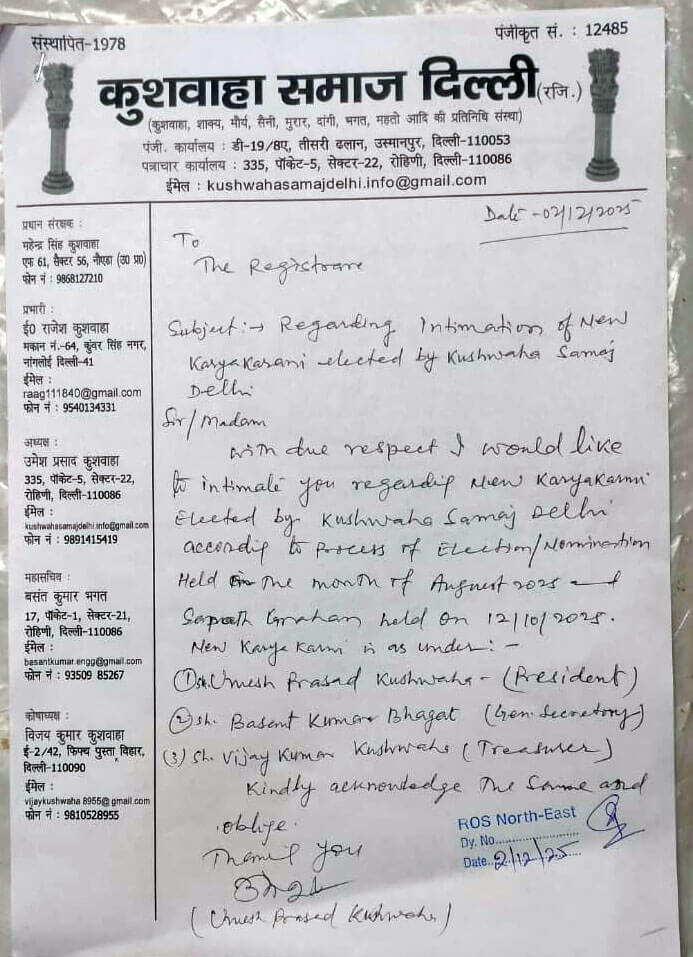 संस्थापित-1978
पंजीकृत सं. : 12485
कुशवाहा समाज दिल्ली(रजि.)
(कुशवाहा, शाक्य, मौर्य, सैनी, मुरार, दांगी, भगत, महतो आदि की प्रतिनिधि संस्था)
पंजी. कार्यालय : डी-19/8ए, तीसरी ढलान, उस्मानपुर, दिल्ली-110053
पत्राचार कार्यालय : 335, पॉकेट-5, सेक्टर-22, रोहिणी, दिल्ली-110086
ईमेल : kushwahasamajdelhi.info@gmail.com
प्रधान संरक्षक :
महेन्द्र सिंह कुशवाहा
एफ 61, सैक्टर 56, नौएडा (उ0 प्र0)
फोन नं : 9868127210
प्रभारी :
ई0 राजेश कुशवाहा
मकान नं.-64, कुंवर सिंह नगर,
नांगलोई दिल्ली-41
ईमेल :
raag111840@gmail.com
फोन नं : 9540134331
अध्यक्ष :
उमेश प्रसाद कुशवाहा
335, पॉकेट-5, सेक्टर-22,
रोहिणी, दिल्ली-110086
ईमेल :
kushwahasamajdelhi.info@gmail.com
फोन नं : 9891415419
महासचिव :
बसंत कुमार भगत
17, पॉकेट-1, सेक्टर-21,
रोहिणी, दिल्ली-110086
ईमेल :
basantkumar.engg@gmail.com
फोन नं : 93509 85267
कोषाध्यक्ष :
विजय कुमार कुशवाहा
ई-2/42, फिफ्थ पुस्ता विहार,
दिल्ली-110090
ईमेल :
vijaykushwaha8955@gmail.com
फोन नं : 9810528955
Date - 02/12/2025
To
The Registrare
Subject:→ Regarding Intimation of New
Karyakarani elected by Kushwaha Samaj
Delhi
Sir/Madam
with due respect I would like
to intimate you regardig New Karyakarni
Elected by Kushwaha Samaj Delhi
accordig to Process of Election/Nomination
Held in the month of August 2025 and
Sapath Grahan held on 12/10/2025.
New Karya Karni is as under: -
① Sh. Umesh Prasad Kushwaha - (President)
② Sh. Basant Kumar Bhagat (Gen. Secretory)
(3) Sh. Vijay Kumar Kushwaha (Treasurer)
Kindly acknowledge the same and
oblige.
Thank you
(Umesh Prasad Kushwaha)
ROS North-East
Dy. No..........
Date..2/12/25